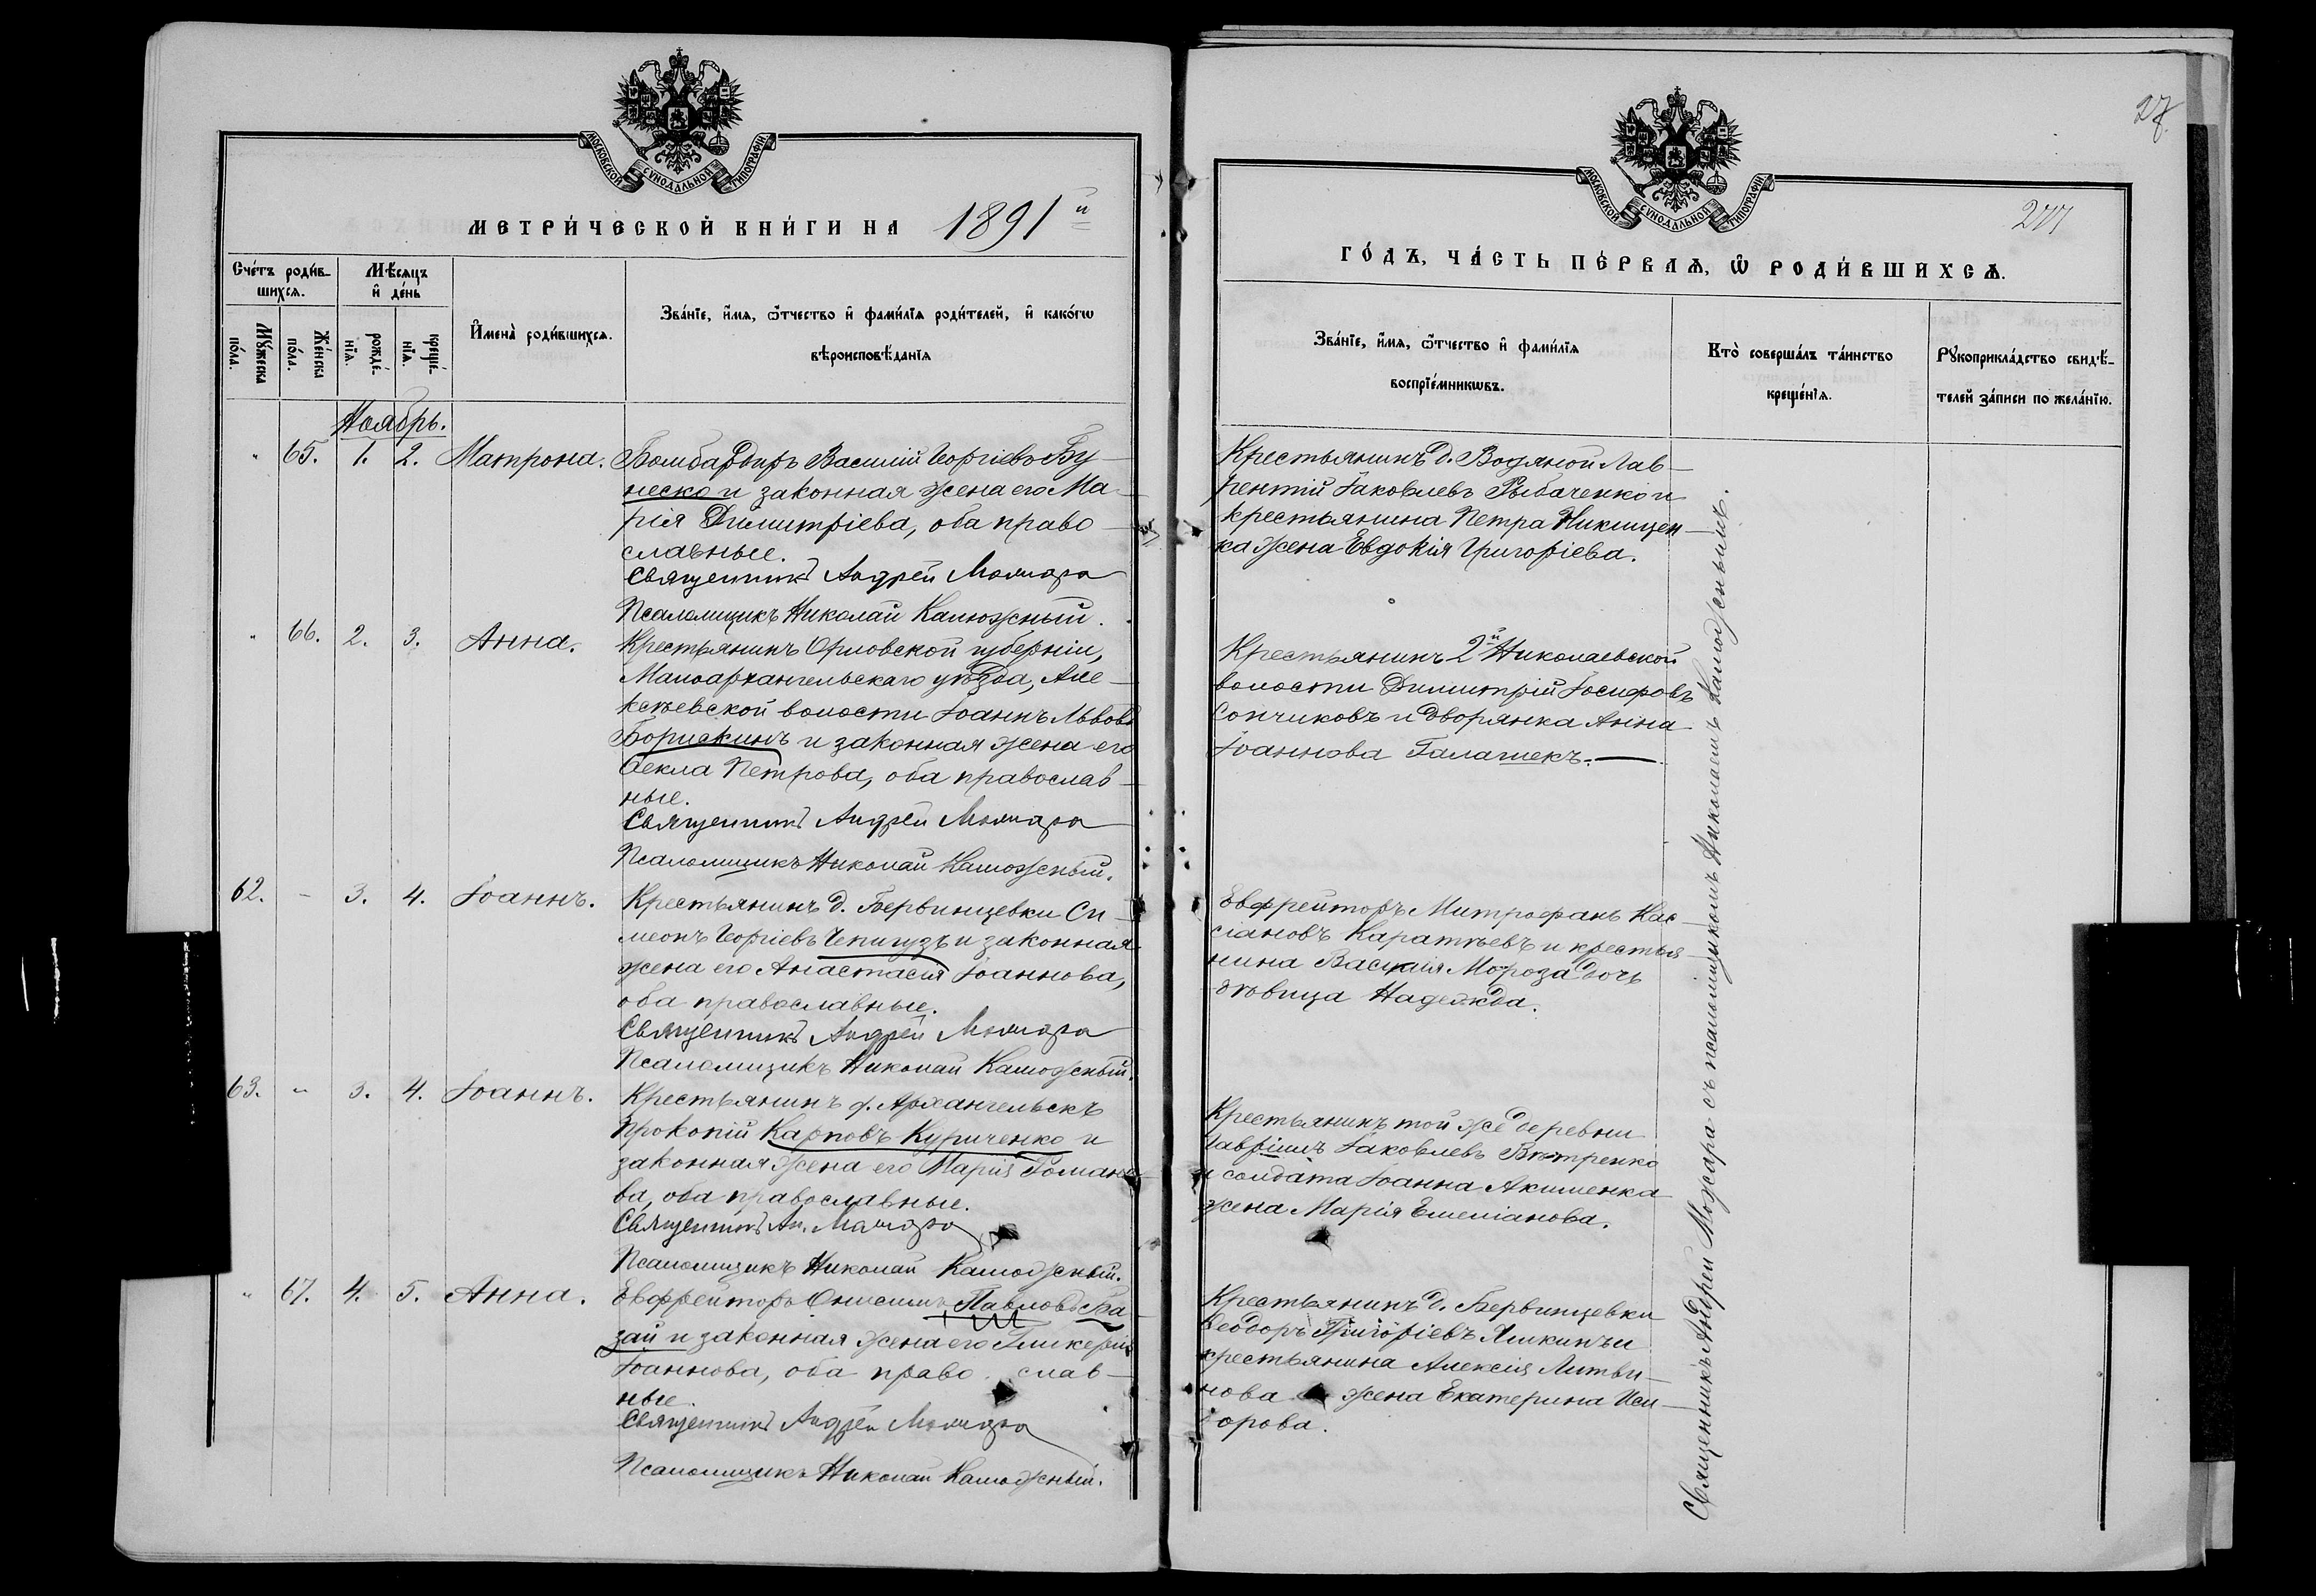 МОСКОВСКОЙ СѴНОДАЛЬНОЙ ТИПОГРАФІИ
МЕТРИ́ЧЕСКОЙ КНИ́ГИ НА 1891й
Сче́тъ роди́в-
шихсѧ.
Мѣ́сѧцъ
и҆ де́нь
Му́жеска
по́ла.
Же́нска
по́ла.
рожде́-
нїѧ.
креще́-
нїѧ.
И҆мена̀ роди́вшихсѧ.
Зва́нїе, и҆́мѧ, ѻ҆́тчество и҆ фами́лїѧ роди́телей, и҆ како́гѡ
вѣроисповѣ́данїѧ
Ноябрь.
" 65. 1. 2. Матрона. Бомбардиръ Василій Георгіевъ Бу-
неско и законная жена его Ма-
рія Димитріева, оба право-
славные.
Священникъ Андрей Можара
Псаломщикъ Николай Калюжный.
" 66. 2. 3. Анна. Крестьянинъ Орловской губерніи,
Малоархангельскаго уѣзда, Але-
ксѣевской волости Іоаннъ Львовъ
Борискинъ и законная жена его
Ѳекла Петрова, оба православ-
ные.
Священникъ Андрей Можара
Псаломщикъ Николай Калюжный.
62. - 3. 4. Іоаннъ. Крестьянинъ д. Бервинцевки Си-
меонъ Георгіевъ Чепигузъ и законная
жена его Анастасія Іоаннова,
оба православные.
Священникъ Андрей Можара
Псаломщикъ Николай Калюжный.
63. " 3. 4. Іоаннъ. Крестьянинъ д. Архангельскъ
Прокопій Карповъ Куриченко и
законная жена его Марія Романо-
ва, оба православные.
Священникъ Ан. Можара
Псаломщикъ Николай Калюжный.
" 67. 4. 5. Анна. Ефрейторъ Онисимъ Павловъ Ба-
зай и законная жена его Гликерія
Іоаннова, оба право слав-
ные.
Священникъ Андрей Можара
Псаломщикъ Николай Калюжный.
27.
277
МОСКОВСКОЙ СѴНОДАЛЬНОЙ ТИПОГРАФІИ
ГО́ДЪ, ЧА́СТЬ ПЕ́РВАѦ, Ѡ҆ РОДИ́ВШИХСѦ.
Зва́нїе, и҆́мѧ, ѻ҆́тчество и҆ фами́лїѧ
воспрїе́мникѡвъ.
Кто̀ соверша́лъ та́инство
креще́нїѧ.
Рꙋкоприкла́дство свидѣ́-
телей за́писи по жела́нїю.
Крестьянинъ д. Водяной Лав-
рентій Іаковлевъ Рыбаченко и
крестьянина Петра Никищен-
ка жена Евдокія Григоріева.
Крестьянинъ 2й Николаевской
волости Димитрій Іосифовъ
Сончиковъ и дворянка Анна
Іоаннова Галашекъ.
Ефрейторъ Митрофанъ Кас-
сіановъ Каратѣевъ и крестья-
нина Василія Мороза дочь
дѣвица Надежда.
Крестьянинъ той же деревни
Гавріилъ Іаковлевъ Вѣтренко
и солдата Іоанна Акименка
жена Марія Емеліанова.
Крестьянинъ д. Бервинцевки
Ѳеодоръ Григоріевъ Яликинъ и
крестьянина Алексія Литви-
нова жена Екатерина Иси-
дорова.
Священникъ Андрей Можара съ псаломщикомъ Николаемъ Калюжнымъ.